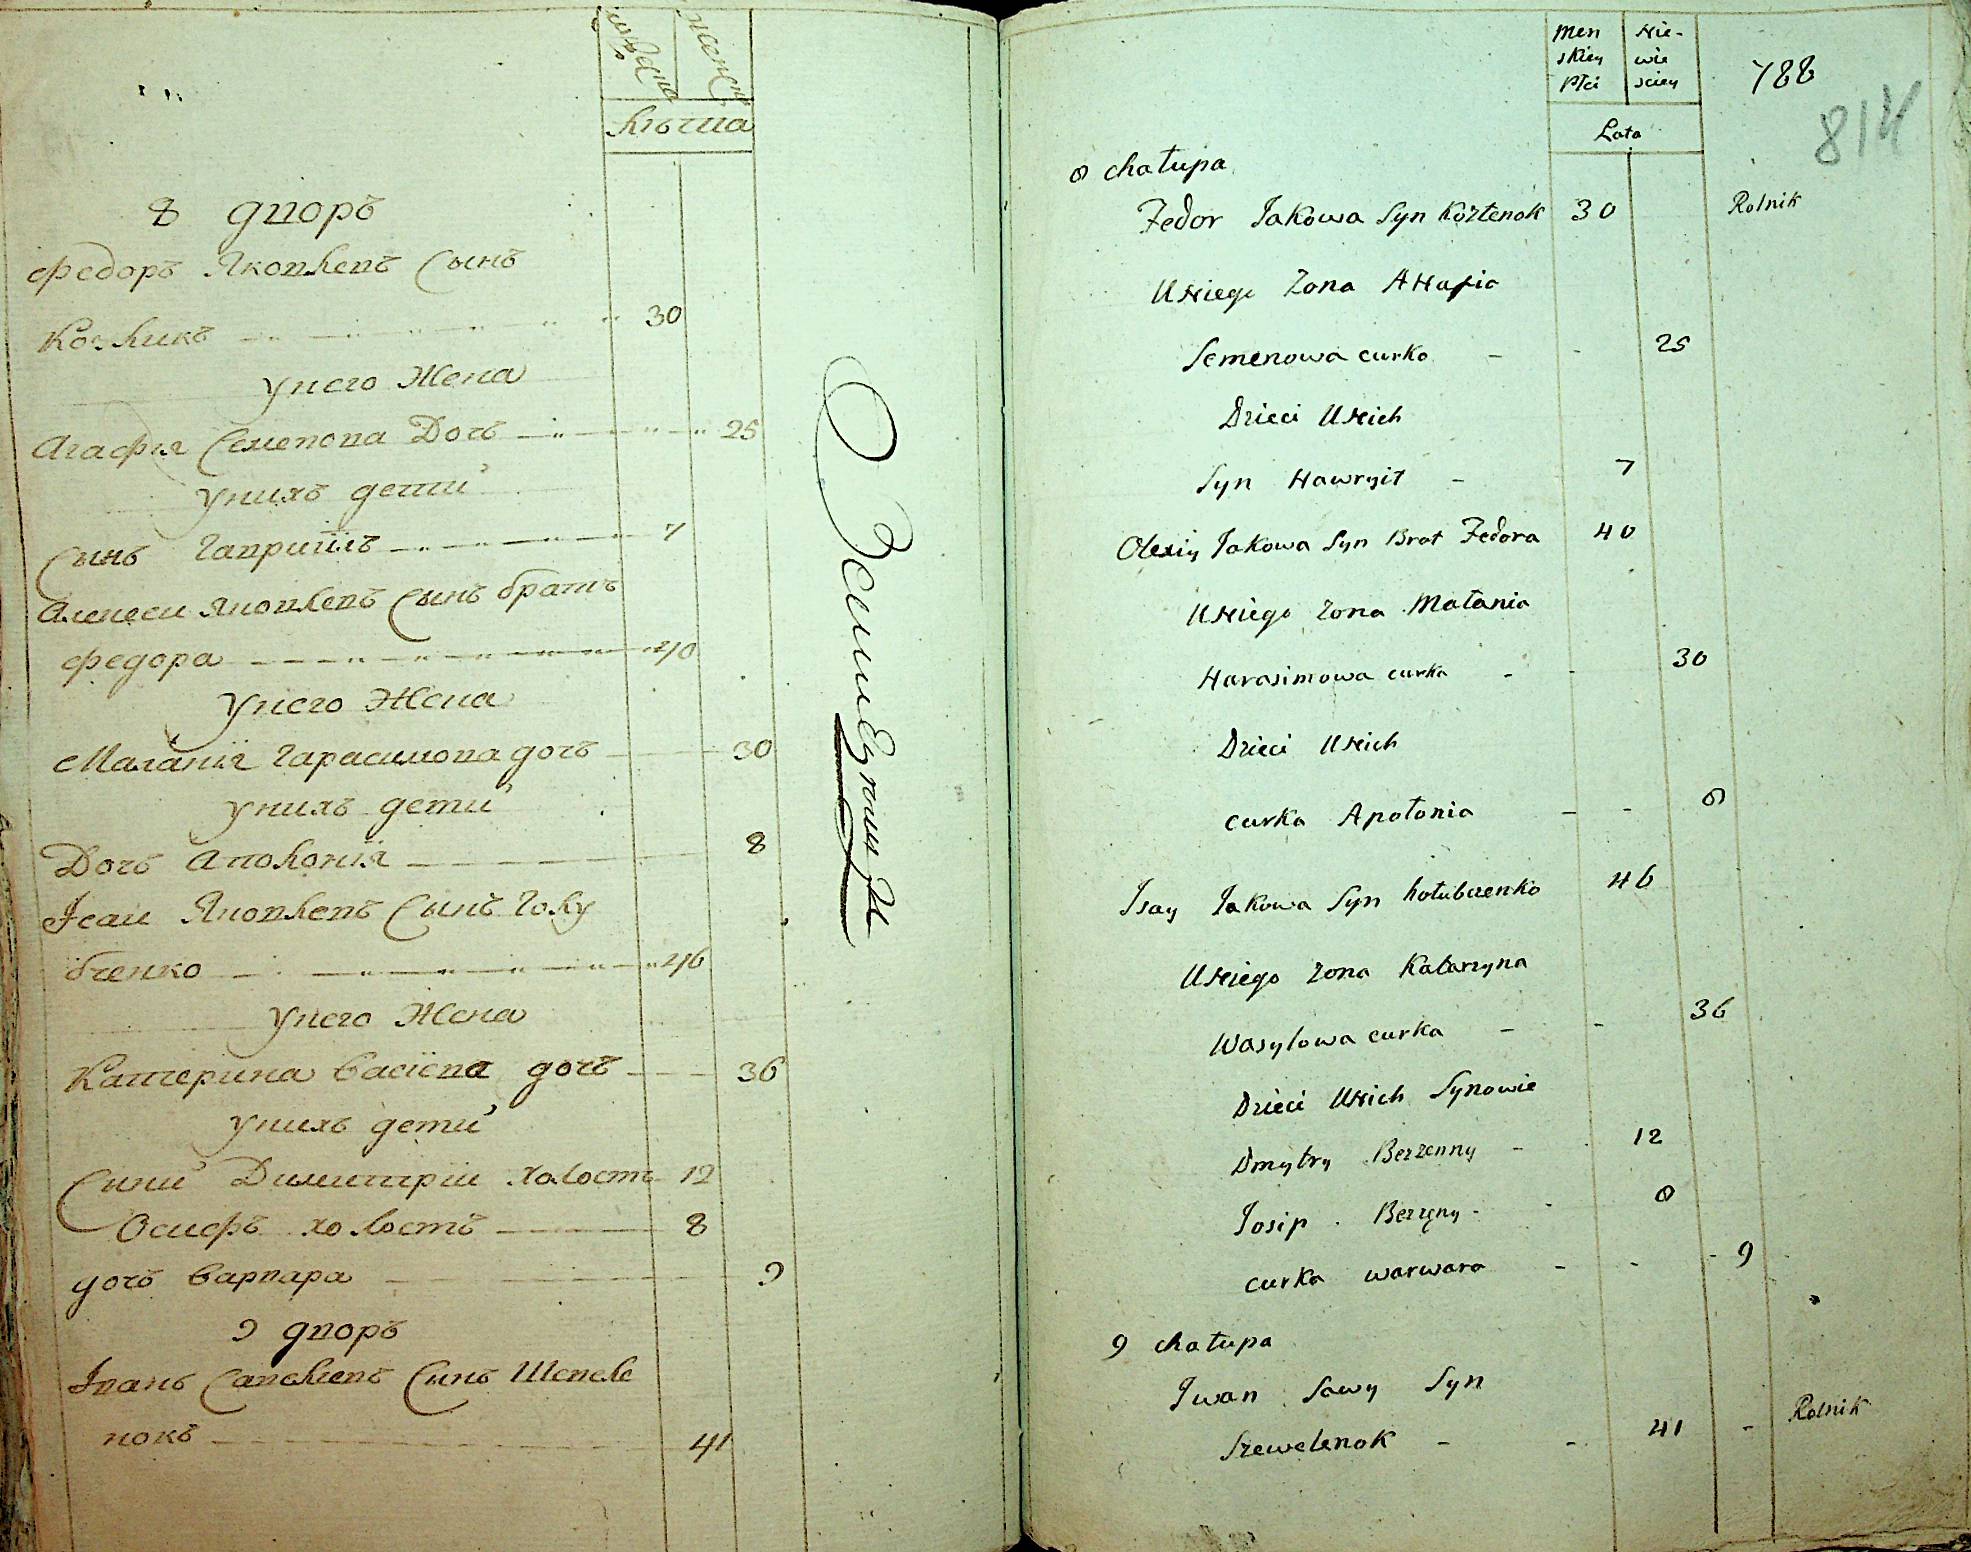 мужеска
женска
лѣта
8 дворъ
Федоръ Яковлевъ Сынъ
Козликъ 30
У него Жена
Агафия Семенова Дочь 25
У нихъ дети
Сынъ Гаврииль 7
Алексеи Яковлевъ Сынъ братъ
Федора 40
У него Жена
Маланія Гарасимова дочь 30
У нихъ дети
Дочь Аполонія 8
Ісаи Яковлевъ Сынъ Голу
бченко 46
У него Жена
Катерина Васіева дочь 36
У нихъ дети
Сини Димитріи холостъ 12
Осифъ холостъ 8
дочь Варвара 9
9 дворъ
Іванъ Савелиевъ Синъ Шевеле
нокъ 41
Men
skiey
Płci
Nie-
wie
sciey
Lata
788
814
8 chałupa
Fedor Jakowa Syn Kozlenok 30 Rolnik
U Niego Zona AHafia
Semenowa curka - - 25
Dzieci U Nich
Syn Hawryił - 7
Olexiy Jakowa Syn Brat Fedora 40
U Niego Zona Małania
Harasimowa curka - - 30
Dzieci U Nich
curka Apołonia - - 8
Isay Jakowa Syn hołubczenko 46
U Niego Zona Katarzyna
Wasylowa curka - - 36
Dzieci U Nich Synowie
Dmytry Bezzenny - 12
Josip Bezzęny - 8
curka warwara - - - 9
9 chałupa
Iwan Sawy Syn
Szewelenok - - 41 - Rolnik